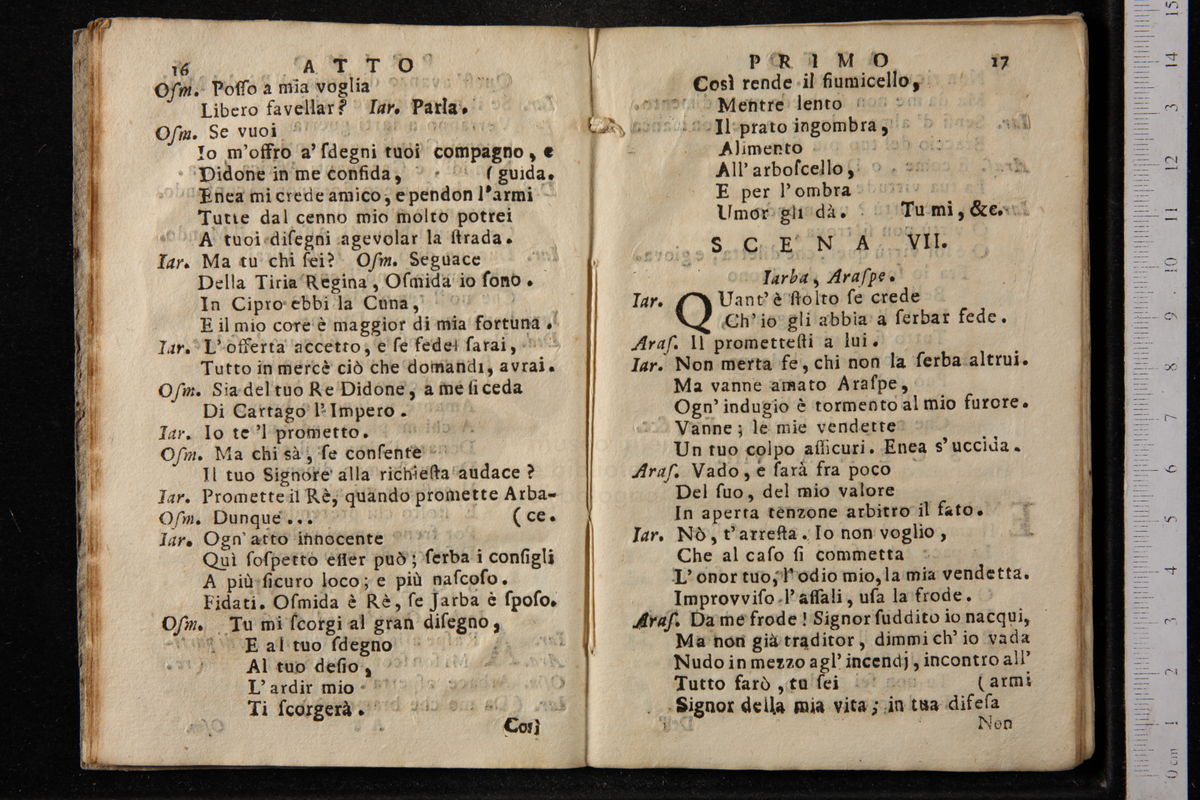 16 ATTO
Oſm. Poſſo a mia voglia
Libero favellar? Iar. Parla.
Oſm. Se vuoi
Io m'offro a' ſdegni tuoi compagno, e
Didone in me confida, (guida.
Enea mi crede amico, e pendon l'armi
Tutte dal cenno mio molto potrei
A tuoi diſegni agevolar la ſtrada.
Iar. Ma tu chi ſei? Oſm. Seguace
Della Tiria Regina, Oſmida io ſono.
In Cipro ebbi la Cuna,
E il mio core è maggior di mia fortuna.
Iar. L'offerta accetto, e ſe fedel ſarai,
Tutto in mercè ciò che domandi, avrai.
Oſm. Sia del tuo Re Didone, a me ſi ceda
Di Cartago l'Impero.
Iar. Io te 'l prometto.
Oſm. Ma chi sà, ſe conſente
Il tuo Signore alla richieſta audace?
Iar. Promette il Rè, quando promette Arba-
Oſm. Dunque... (ce.
Iar. Ogn' atto innocente
Quì ſoſpetto eſſer può; ſerba i conſigli
A più ſicuro loco; e più naſcoſo.
Fidati. Oſmida è Rè, ſe Jarba è ſpoſo.
Oſm. Tu mi ſcorgi al gran diſegno,
E al tuo ſdegno
Al tuo deſio,
L'ardir mio
Ti ſcorgerà.
Così
PRIMO 17
Così rende il fiumicello,
Mentre lento
Il prato ingombra,
Alimento
All' arboſcello,
E per l'ombra
Umor gli dà. Tu mi, &c.
SCENA VII.
Iarba, Araſpe.
Iar. QUant' è ſtolto ſe crede
Ch' io gli abbia a ſerbar fede.
Araſ. Il prometteſti a lui.
Iar. Non merta fe, chi non la ſerba altrui.
Ma vanne amato Araſpe,
Ogn' indugio è tormento al mio furore.
Vanne; le mie vendette
Un tuo colpo aſſicuri. Enea s'uccida.
Araſ. Vado, e ſarà fra poco
Del ſuo, del mio valore
In aperta tenzone arbitro il fato.
Iar. Nò, t'arreſta. Io non voglio,
Che al caſo ſi commetta
L'onor tuo, l'odio mio, la mia vendetta.
Improvviſo l'aſſali, uſa la frode.
Araſ. Da me frode! Signor ſuddito io nacqui,
Ma non già traditor, dimmi ch' io vada
Nudo in mezzo agl' incendj, incontro all'
Tutto farò, tu ſei (armi
Signor della mia vita; in tua difeſa
Non